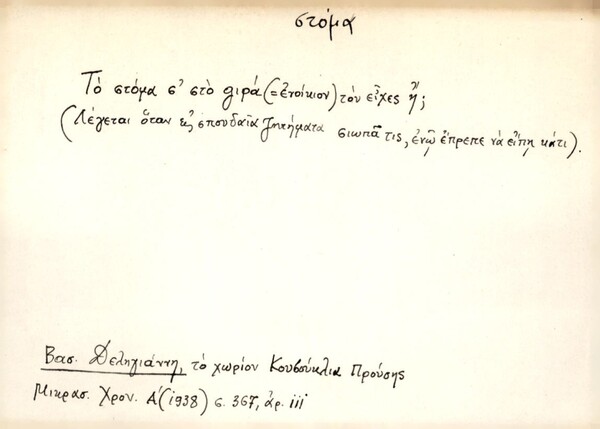 στόμα
Τὸ στόμα σ' στὸ γιρά (= ἐνοίκιον) τὸν εἶχες ἤ;
(Λέγεται ὅταν εἰς σπουδαῖα ζητήματα σιωπᾷ τις, ἐνῷ ἔπρεπε νὰ εἴπῃ κάτι).
Βασ. Δεληγιάννη, τὸ χωρίον Κουβούκλια Προύσης
Μικρασ. Χρον. Α' (1938) σ. 367, ἀρ. iii